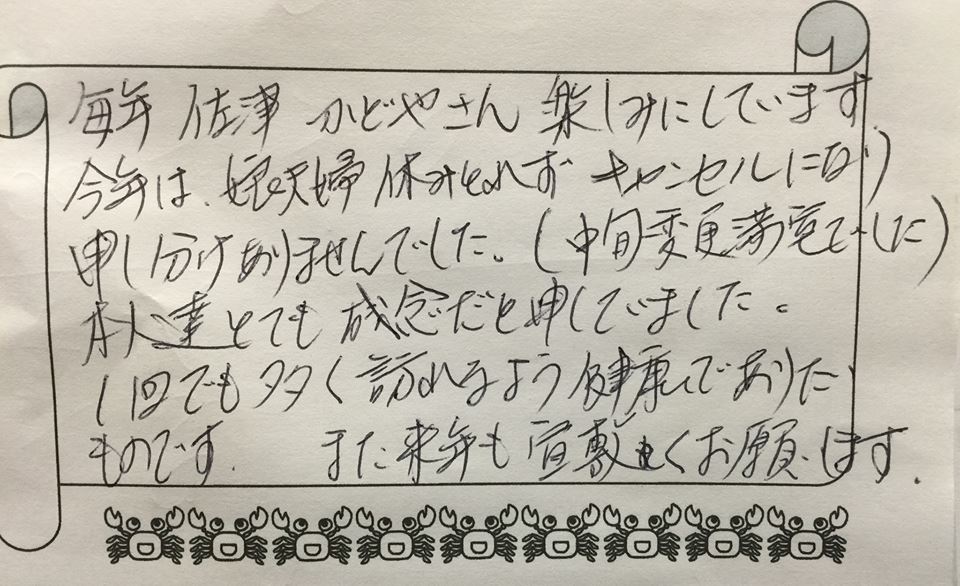 毎年 佐津 かどやさん 楽しみにしています
今年は、娘夫婦 休みとれず キャンセルになり
申し分けありませんでした。(中旬変更満室でした)
本人達とても残念だと申していました。
1回でも多く訪れるよう健康でありたい
ものです. また来年も宜敷くお願いします.